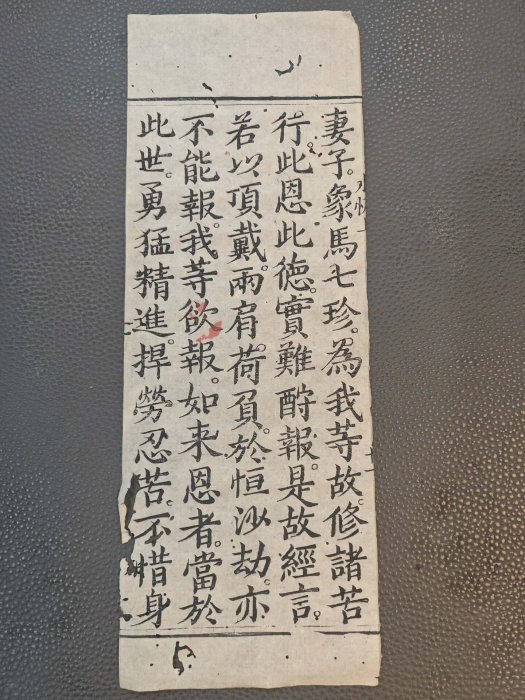 妻子。象馬七珍。為我等故。修諸苦
行。此恩此德。實難酬報。是故經言。
若以頂戴。兩肩。荷負。於恒沙劫。亦
不能報。我等欲報。如来恩者。當於
此世。勇猛精進。捍勞忍苦。不惜身